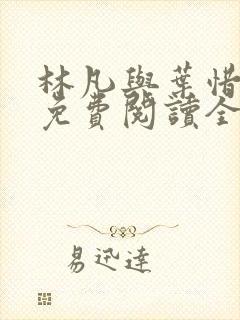 林凡與葉惜
免費閱讀全
易迅達